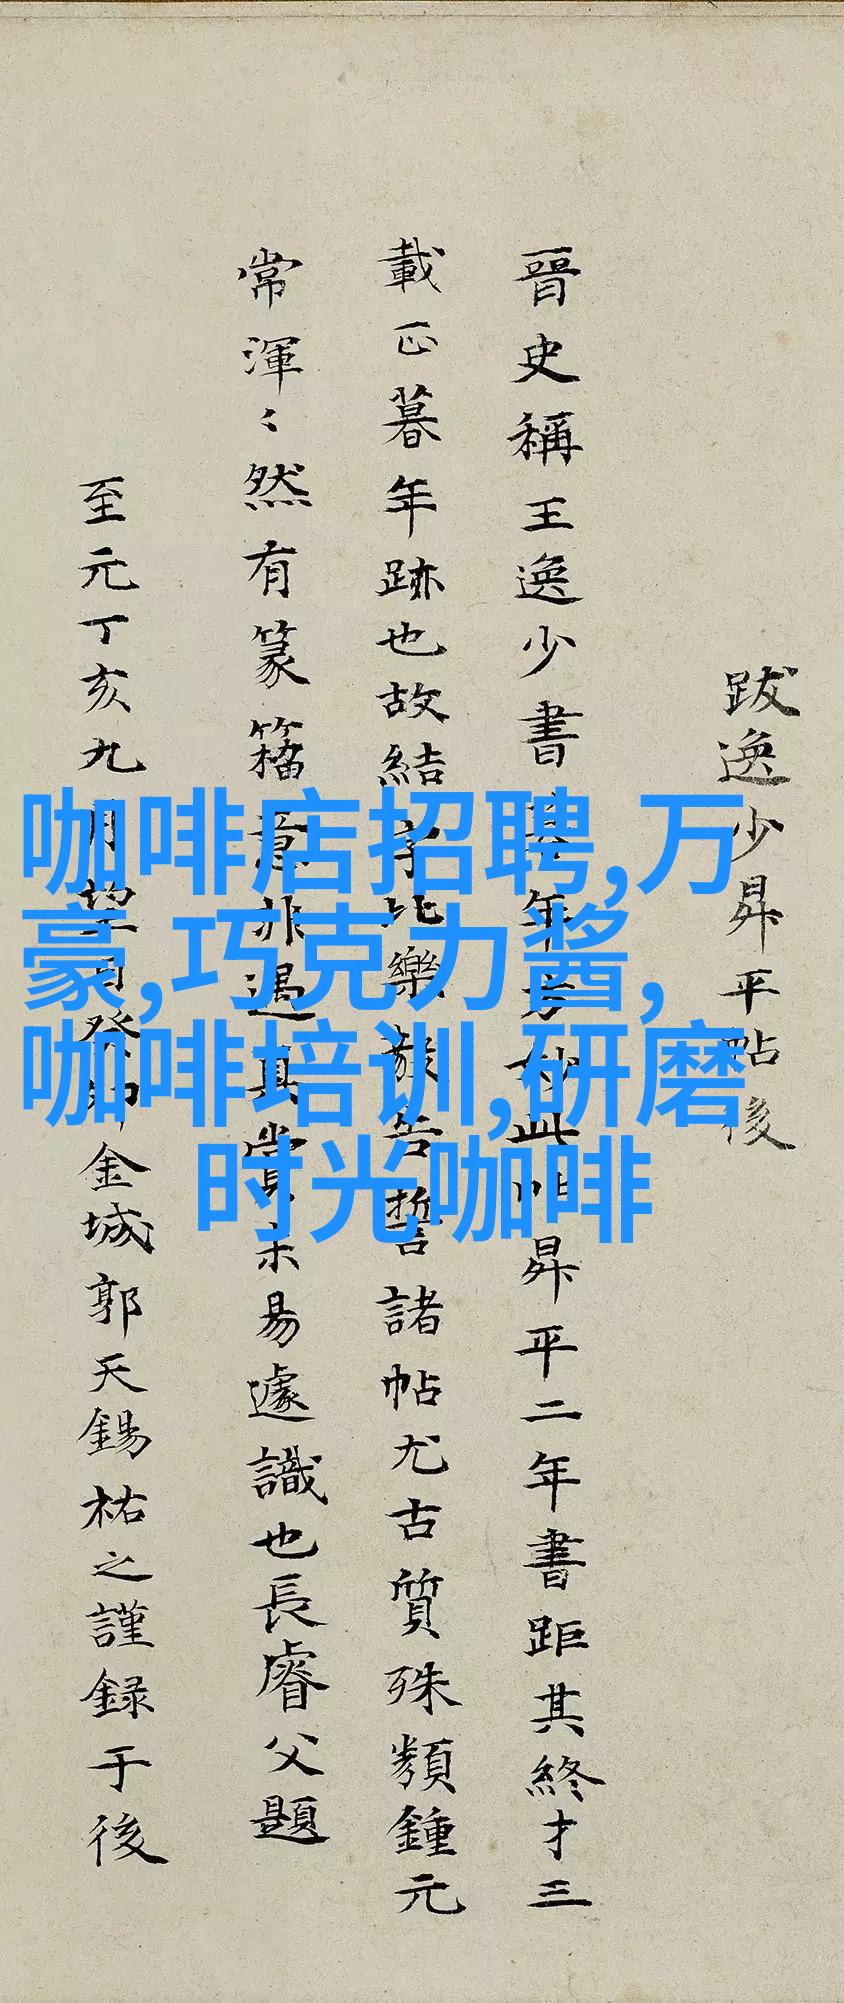 跋逸少昇平帖後
晉史稱王逸少書暮年方妙此帖昇平二年書距其終才三
載正暮年跡也故結字比樂毅告誓諸帖尤古質殊類鍾元
常渾〻然有篆籀意非遇真賞未易遽識也長睿父題
至元丁亥九月望日癸卯金城郭天錫祐之謹録于後
咖啡店招聘,万
豪,巧克力酱,
咖啡培训,研磨
时光咖啡